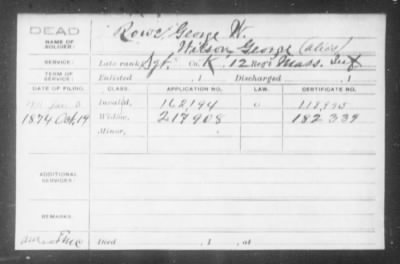 DEAD
NAME OF SOLDIER:
Rowe George W.
Wilson George (alias)
SERVICE:
Late rank Sgt. Co. K, 12 Reg't Mass. Inf
TERM OF SERVICE:
Enlisted , 1 Discharged , 1
DATE OF FILING. CLASS. APPLICATION NO. LAW. CERTIFICATE NO.
Invalid, 162,194
1874 Oct, 19 Widow, 217908 182339
Minor,
ADDITIONAL SERVICES:
REMARKS:
Died , 1 , at